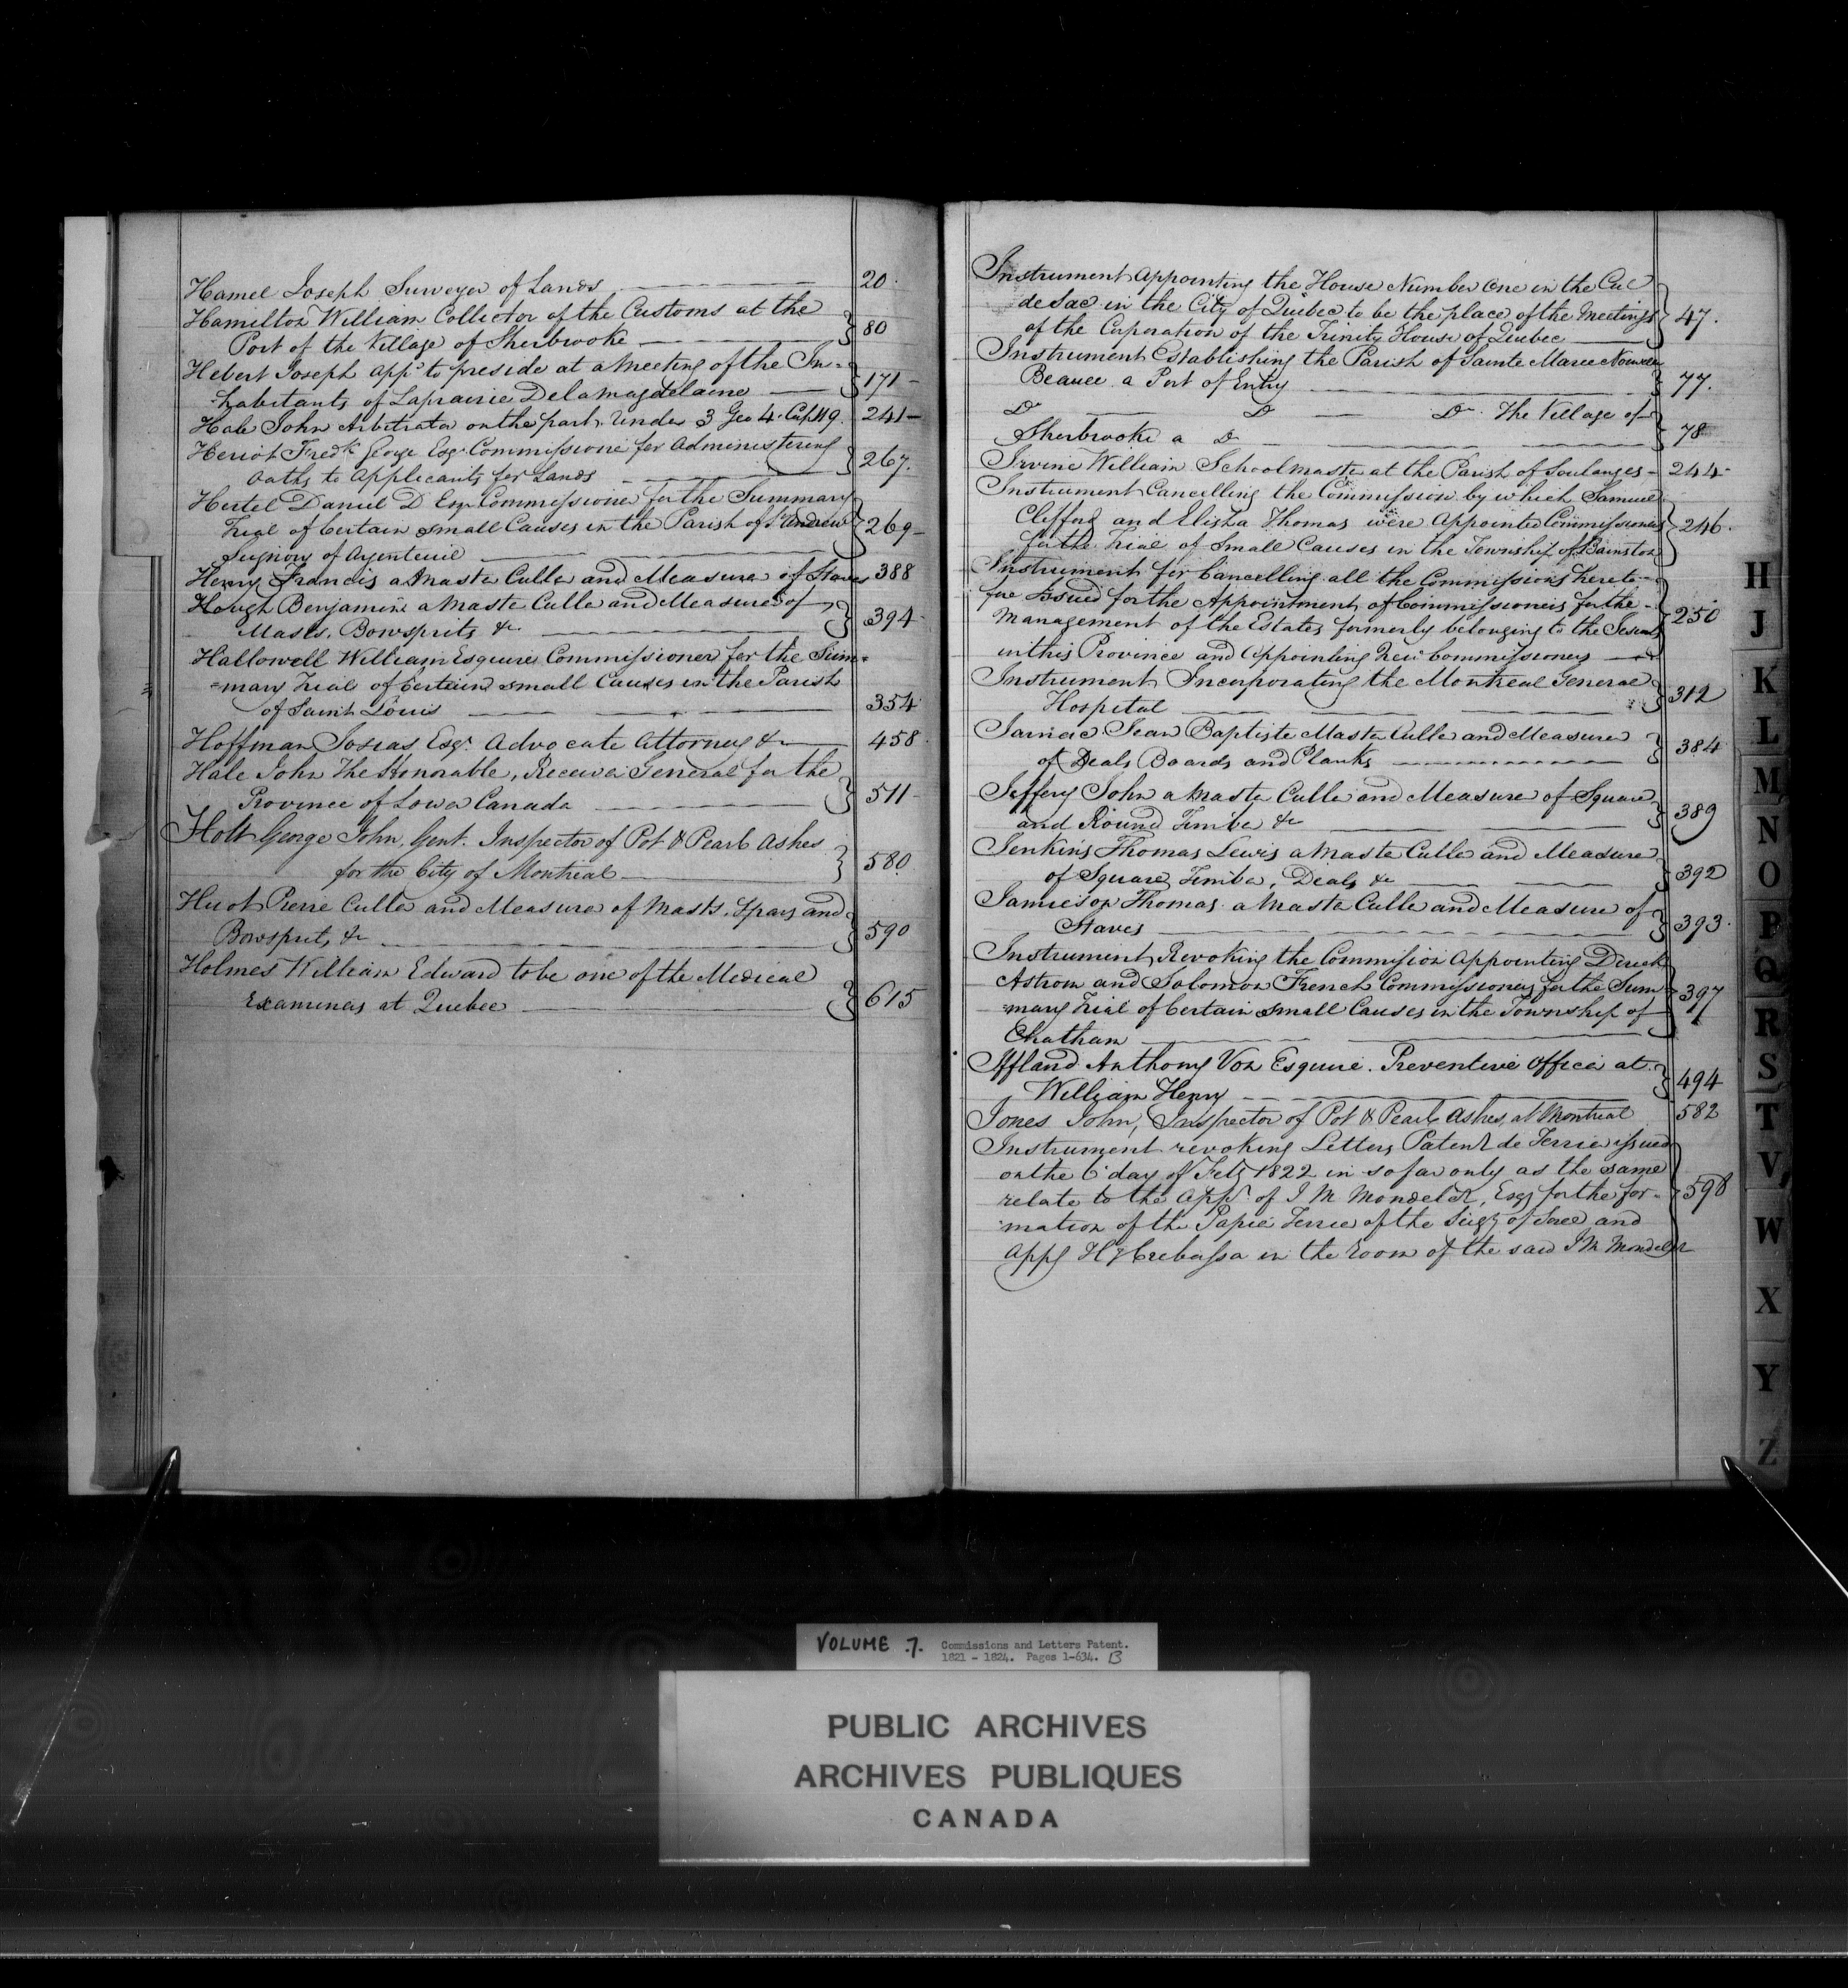 Hamel Joseph Surveyor of Lands 20
Hamilton William Collector of the Customs at the
Port of the Village of Sherbrooke 80
Hebert Joseph app'd to preside at a Meeting of the In-
habitants of Laprairie Delamagdelaine 171
Hale John Arbitrator on the part, Under 3 Geo 4. Cap 119. 241
Heriot Fredk George Esqr. Commissioner for Administering
Oaths to Applicants for Lands 267.
Hertel Daniel D Esqr Commissioner for the Summary
Trial of Certain Small Causes in the Parish of St Andrew
Seigniory of Argenteuil 269
Henry Francis a Master Culler and Measurer of Staves 388
Hough Benjamin a Master Culler and Measurer of
Masts, Bowsprits &c 394
Hallowell William Esquire Commissioner for the Sum=
=mary Trial of Certain small Causes in the Parish
of Saint Louis 354
Hoffman Josias, Esqr. Advocate Attorney &c 458
Hale John The Honorable, Receiver General for the
Province of Lower Canada 511
Holt George John, Gent. Inspector of Pot & Pearl Ashes
for the City of Montreal 580
Huot Pierre Culler and Measurer of Masts, Spars and
Bowsprits, &c 590
Holmes William Edward to be one of the Medical
Examiners at Quebec 615
Instrument Appointing the House Number One in the Cul
de Sac in the City of Quebec to be the place of the Meetings
of the Corporation of the Trinity House of Quebec 47.
Instrument Establishing the Parish of Sainte Marie Nouvelle
Beauce a Port of Entry 77.
Do Do Do The Village of
Sherbrooke a Do 78
Irvine William Schoolmaster at the Parish of Soulanges 244
Instrument Cancelling the Commission by which Samuel
Clefford and Elisha Thomas were Appointed Commissioners
for the Trial of Small Causes in the Township of Barnston 246.
Instrument for Cancelling all the Commissions hereto-
fore Issued for the Appointment of Commissioners for the
Management of the Estates formerly belonging to the Jesuits
in this Province and Appointing New Commissioners 250
Instrument Incorporating the Montreal General
Hospital 312
Jarnac Jean Baptiste Master Culler and Measurer
of Deals Boards and Planks 384
Jeffery John a Master Culler and Measurer of Square
and Round Timber &c 389
Jenkins Thomas Lewis a Master Culler and Measurer
of Square Timber, Deals &c 392
Jamieson Thomas a Master Culler and Measurer of
Staves 393.
Instrument Revoking the Commission Appointing Direck
Astrom and Solomon French Commissioners for the Sum
=mary Trial of Certain small Causes in the Township of
Chatham 397
Iffland Anthony Von Esquire. Preventive Officer at
William Henry 494
Jones John, Inspector of Pot & Pearl Ashes, at Montreal 582
Instrument revoking Letters Patent de Terrier issued
on the 6 day of Feby 1822 in so far only as the same
relate to the Appt of J M Mondelet, Esqr for the for-
mation of the Papier Terrier of the Seigy of Sorel and
Appg H Crebassa in the Room of the said J M Mondelet 598
H
J
K
L
M
N
O
P
Q
R
S
T
V
W
X
Y
Z
VOLUME 7. Commissions and Letters Patent.
1821 - 1824. Pages 1-634. B
PUBLIC ARCHIVES
ARCHIVES PUBLIQUES
CANADA